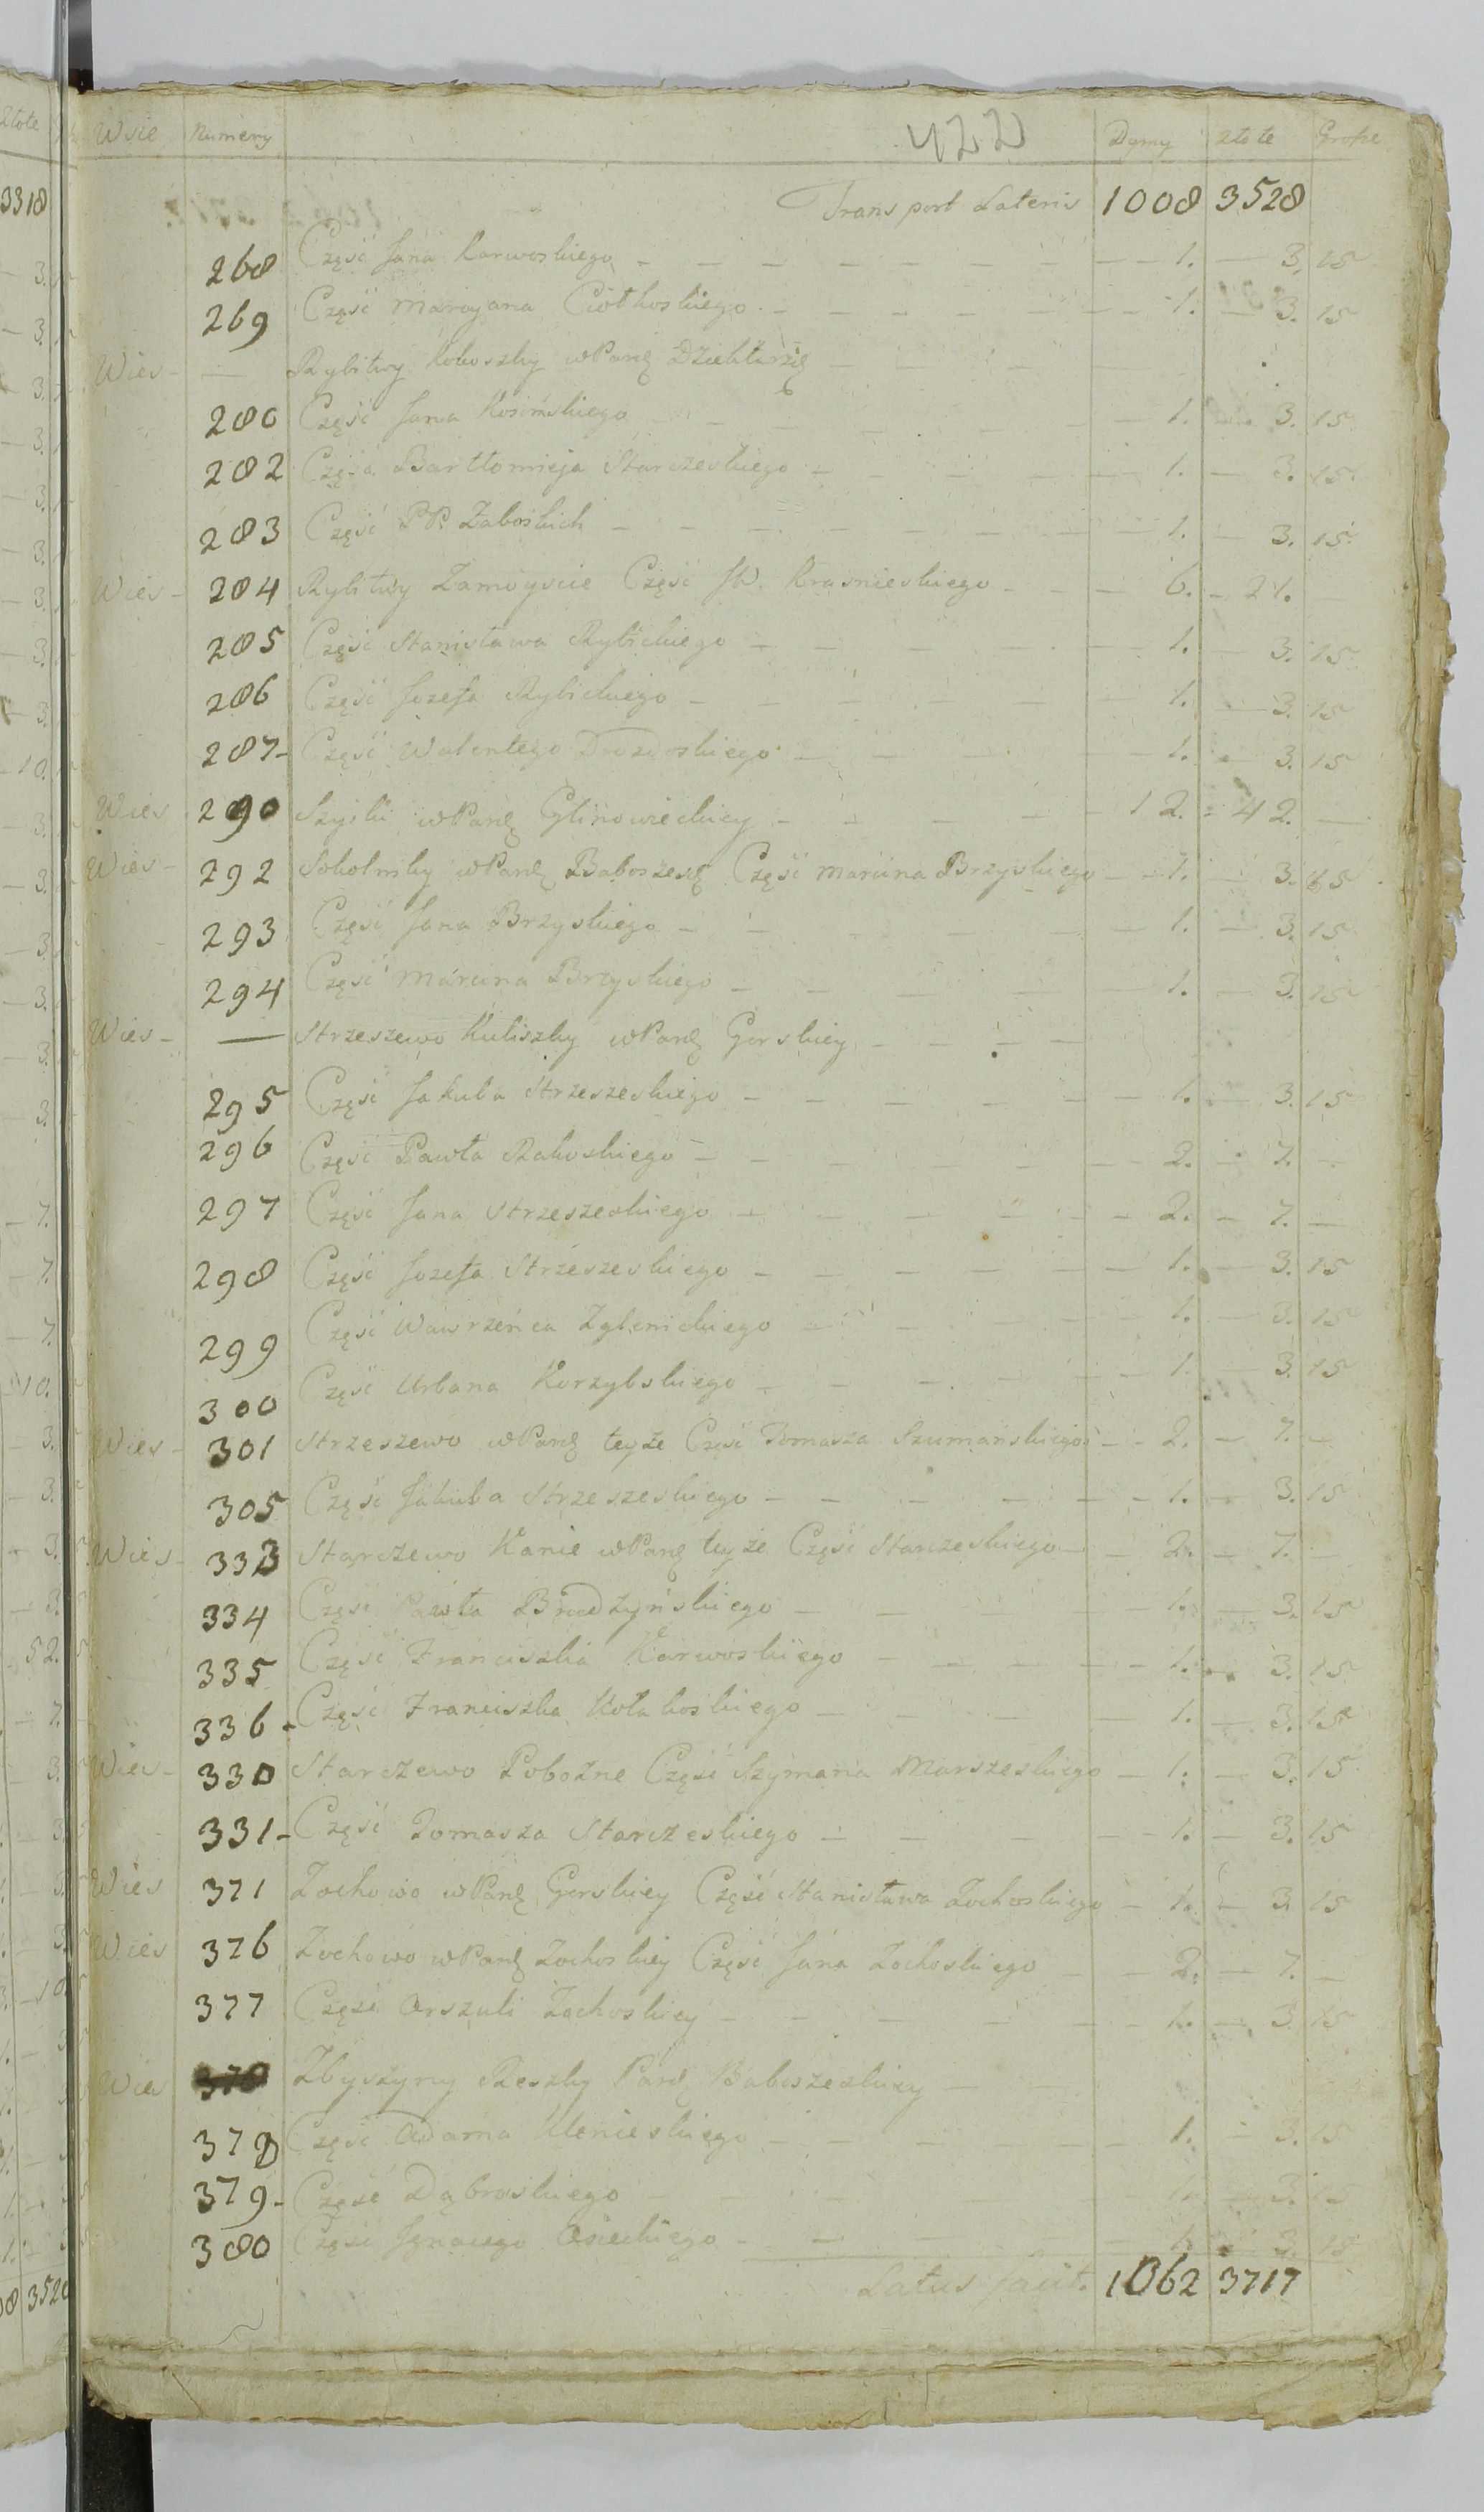 Wsie Numery 422 Dymy złote Grosze
Transport Lateris 1008 3528
268 Część Jana Karwoskiego 1. 3. 15
269 Część Maryana Ciołkoskiego 1. 3. 15
Wies — Rybitwy Koboszky w Parą Dziektarzę
280 Część Jana Kosinskiego 1. 3. 15
282 Część Bartłomieja Starczeskiego 1. 3. 15
283 Część PP. Zaboskich 1. 3. 15
284 Wies Rybitwy Zamoyscie Część JW. Krasnieskiego 6. 21. —
285 Część Stanisława Rybickiego 1. 3. 15
286 Część Jozefa Rybickiego 1. 3. 15
287 Część Walentego Drozdoskiego 1. 3. 15
Wies 290 Szyiki w Parą Glinowieckiey 12. 42. —
Wies 292 w Parą Baboszew Część Marcina Brzyskiego 1. 3. 15
293 Część Jana Brzyskiego 1. 3. 15
294 Część Marcina Brzyskiego 1. 3. 15
Wies — Strzeszewo Kuliszky w Parą Gorskiey
295 Część Jakuba Strzeszeskiego 1. 3. 15
296 Część Pawła Rakoskiego 2. 7. —
297 Część Jana Strzeszeskiego 2. 7. —
298 Część Jozefa Strzeszeskiego 1. 3. 15
299 Część Wawrzeńca Zglenickiego 1. 3. 15
300 Część Urbana Korzybskiego 1. 3. 15
Wies 301 Strzeszewo w Parą teyże Częsc Tomasza Szumanskiego 2. 7. —
305 Część Jakuba Strzeszeskiego 1. 3. 15
Wies 333 Starczewo Kanie w Parą teyże Część Starczeskiego 2. 7. —
334 Część Pawła Brudzyńskiego 1. 3. 15
335 Część Franciszka Karwoskiego 1. 3. 15
336 Część Franciszka Kołakoskiego 1. 3. 15
Wies 330 Starczewo Pobożne Część Szymana Marszeskiego 1. 3. 15
331 Część Tomasza Starczeskiego 1. 3. 15
Wies 371 Zochowo w Parą Gorskiey Część Stanisława Zochoskiego 1. 3. 15
Wies 376 Zochowo w Parą Zochoskiey Część Jana Zochoskiego 2. 7. —
377 Część Orszuli Zochoskiey 1. 3. 15
Wies 378 Zbyszyny Reszky Parą Baboszeskiey
378 Część Adama Ulenieskiego 1. 3. 15
379 Część Dąbroskiego 1. 3. 15
380 Część Jgnacego Osieckiego 1. 3. 15
Latus facit. 1062 3717